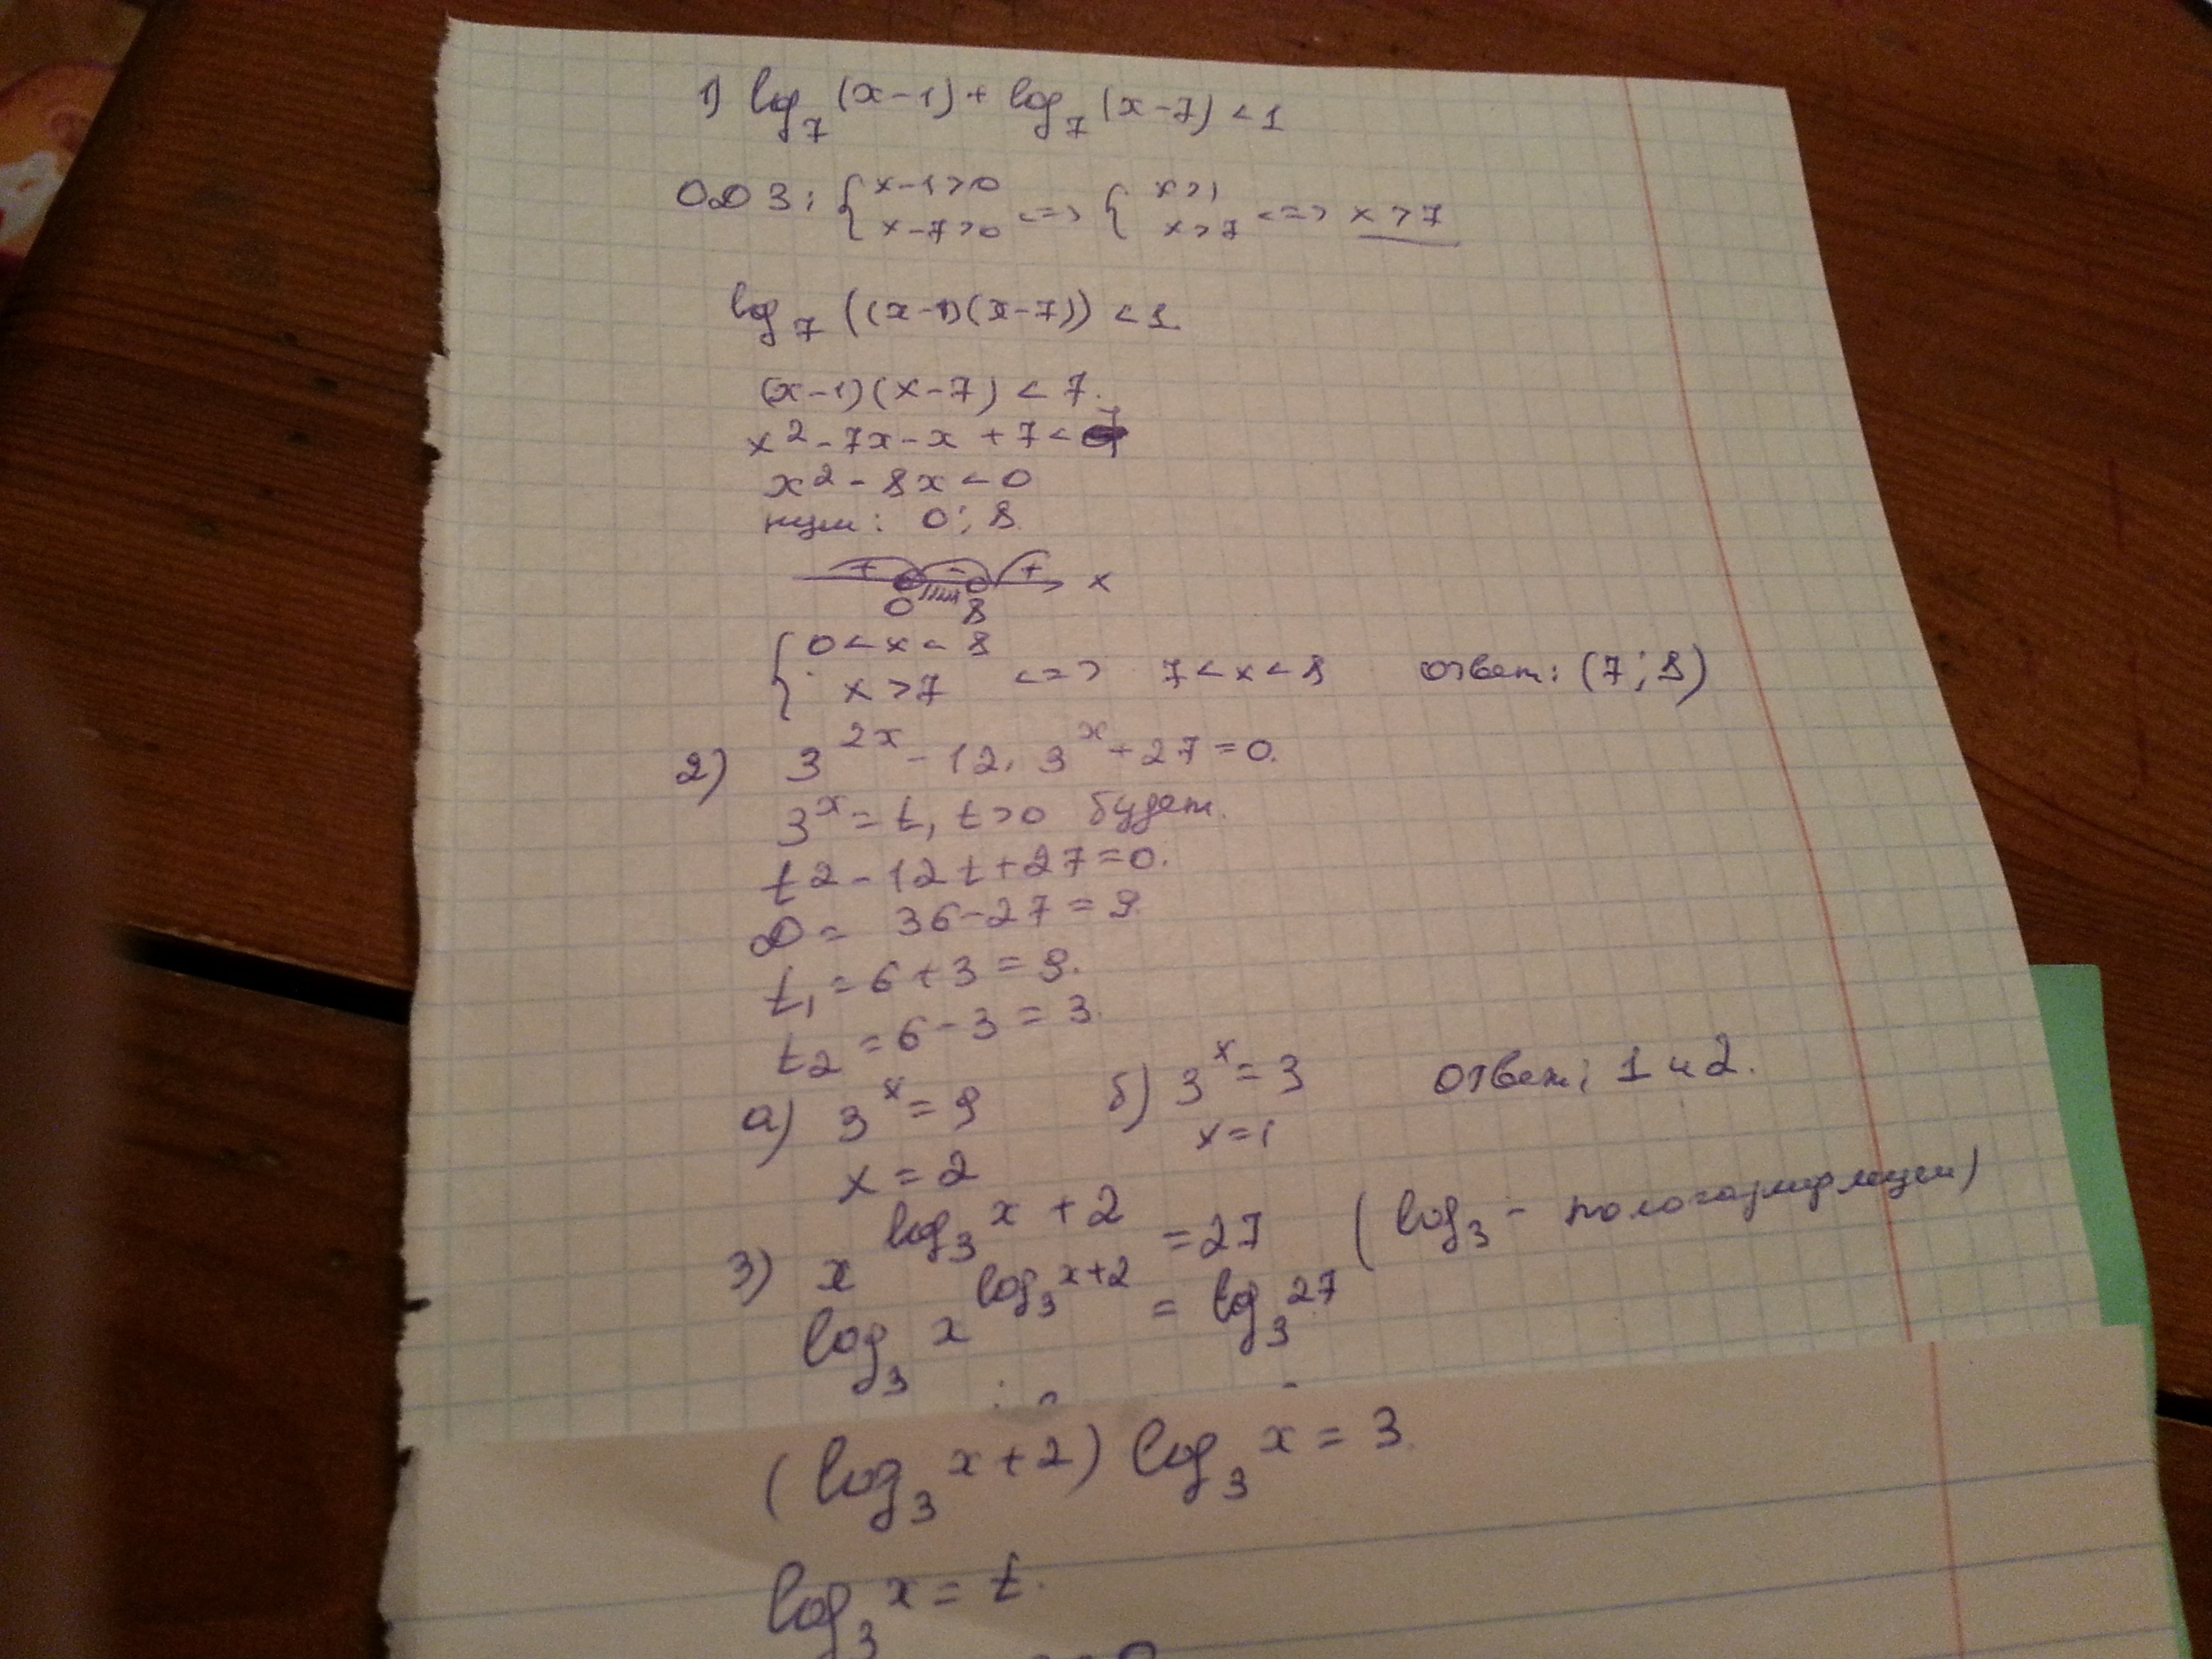 1) log₇(x-1) + log₇(x-7) < 1
ОДЗ: { x-1>0 x-7>0 <=> { x>1 x>7 <=> x>7
log₇((x-1)(x-7)) < 1.
(x-1)(x-7) < 7.
x²-7x-x+7<7
x²-8x<0
нули: 0; 8.
+ - + x
0 8
{ 0<x<8 x>7 <=> 7<x<8 ответ: (7; 8)
2) 3^(2x) - 12 · 3^x + 27 = 0.
3^x = t, t>0 будет.
t2 - 12t + 27 = 0.
D = 36-27 = 9
t₁ = 6+3 = 9.
t₂ = 6-3 = 3.
а) 3^x = 9 б) 3^x = 3 ответ: 1 и 2.
x = 2 x = 1
3) x^(log₃x+2) = 27 (log₃ - пологарифмируем)
log₃ x^(log₃x+2) = log₃27
(log₃x+2) log₃x = 3.
log₃x = t.